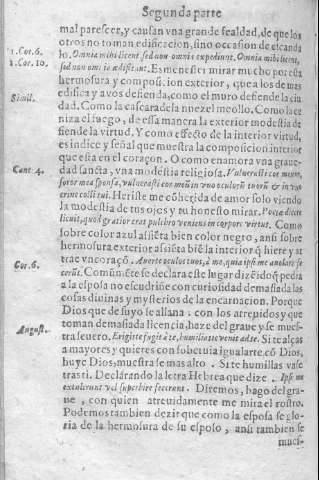 Segunda parte
mal parescer, y causan vna grande fealdad, de que los
otros no toman edificacion, sino occasion de escanda
1.Cor.6. lo. Omnia mihi licent sed non omnia expediunt. Omnia mihi licent,
1.Cor.10. sed non omnia ædificant. Es menester mirar mucho por esta
hermosura y composicion exterior, que a los de mas
Simil. edifica y a vos defienda, como el muro defiende la ciu
dad. Como la cascara de la nuez el meollo. Como la ce
niza el fuego, de essa manera la exterior modestia de
fiende la virtud. Y como effecto de la interior virtud,
es indice y señal que muestra la composicion interior
que esta en el coraçon. O como enamora vna graue-
Cant. 4. dad sancta, vna modestia religiosa. Vulnerasti cor meum,
soror mea sponsa, vulnerasti cor meũ in vno oculorũ tuorũ & in vno
crine colli tui. Heriste me cõ herida de amor solo viendo
la modestia de tus ojos y su honesto mirar.
licuit, quod gratior erat pulchro veniens in corpore virtus. Como
sobre color azul assiẽta bien color negro, ansi sobre
hermosura exterior assiẽta biẽ la interior q̃ hiere y at
Cor.6. trae vn coraçõ. Auerte oculos tuos, à me, quia ipsi me auolare fe
cerũt. Comũmẽte se declara este lugar diziẽdo q̃ pedra
a la esposa no escudriñe con curiosidad demasiada las
cosas diuinas y mysterios de la encarnacion. Porque
Dios que de suyo se allana: con los atreuidos y que
toman demasiada licencia, haze del graue y se mues-
August. tra seuero. Erigis te fugit à te, humilias te venit ad te. Si te alças
a mayores y quieres con soberuia igualarte cõ Dios,
huye Dios, muestra se mas alto. Si te humillas vase
tras ti. Declarando la letra Hebrea que dize. Ipsi me
extulerunt vel superbire fecerunt. Diremos, hago del gra-
ue, con quien atreuidamente me mira el rostro.
Podemos tambien dezir que como la esposa se glo-
ria de la hermosura de su esposo, ansi tambien se
mues-